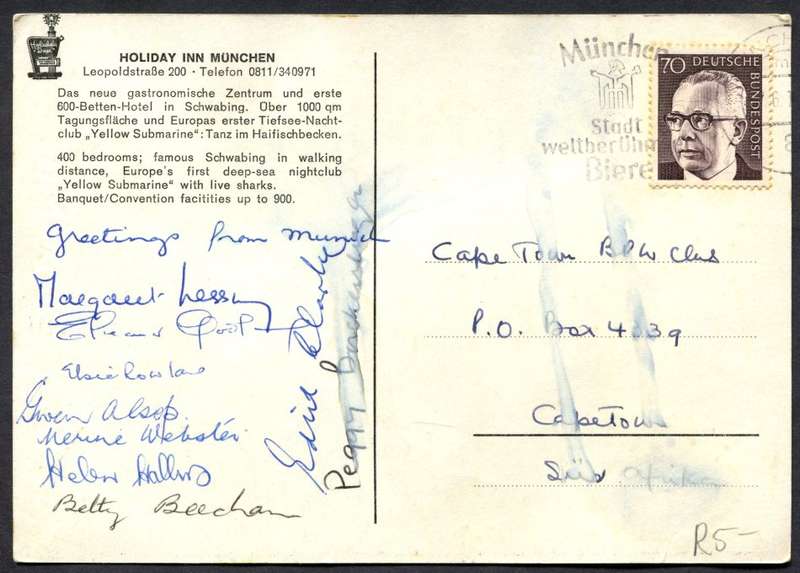 HOLIDAY INN MÜNCHEN
Leopoldstraße 200 · Telefon 0811/340971
Das neue gastronomische Zentrum und erste
600-Betten-Hotel in Schwabing. Über 1000 qm
Tagungsfläche und Europas erster Tiefsee-Nacht-
club „Yellow Submarine“: Tanz im Haifischbecken.
400 bedrooms; famous Schwabing in walking
distance, Europe's first deep-sea nightclub
„Yellow Submarine“ with live sharks.
Banquet/Convention facitities up to 900.
Greetings from Munich
Margaret Lessing
Elsie Rowland
Gwen Alsop.
Merine Webster
Helen
Betty Beecham
Enid Clarke
Peggy
München
Stadt
weltberühm
Biere
70 DEUTSCHE
BUNDESPOST
Cape Town BPW Club
P.O. Box 4039
Cape Town
Süd Afrika
R5-